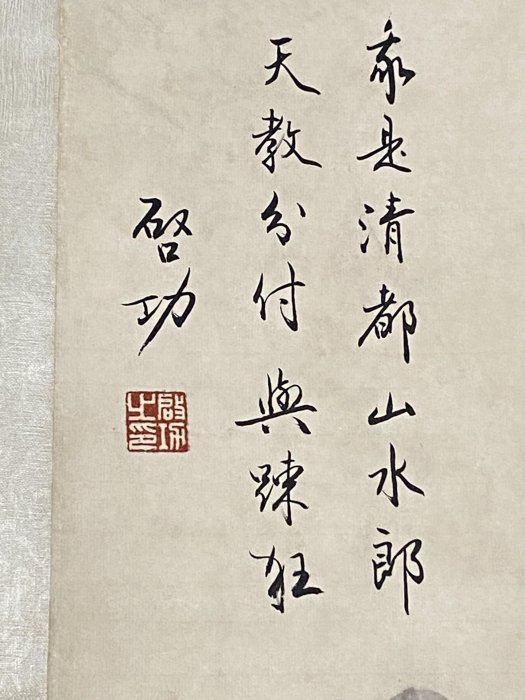 我是清都山水郎
天教分付與踈狂
啓功
啓功之印